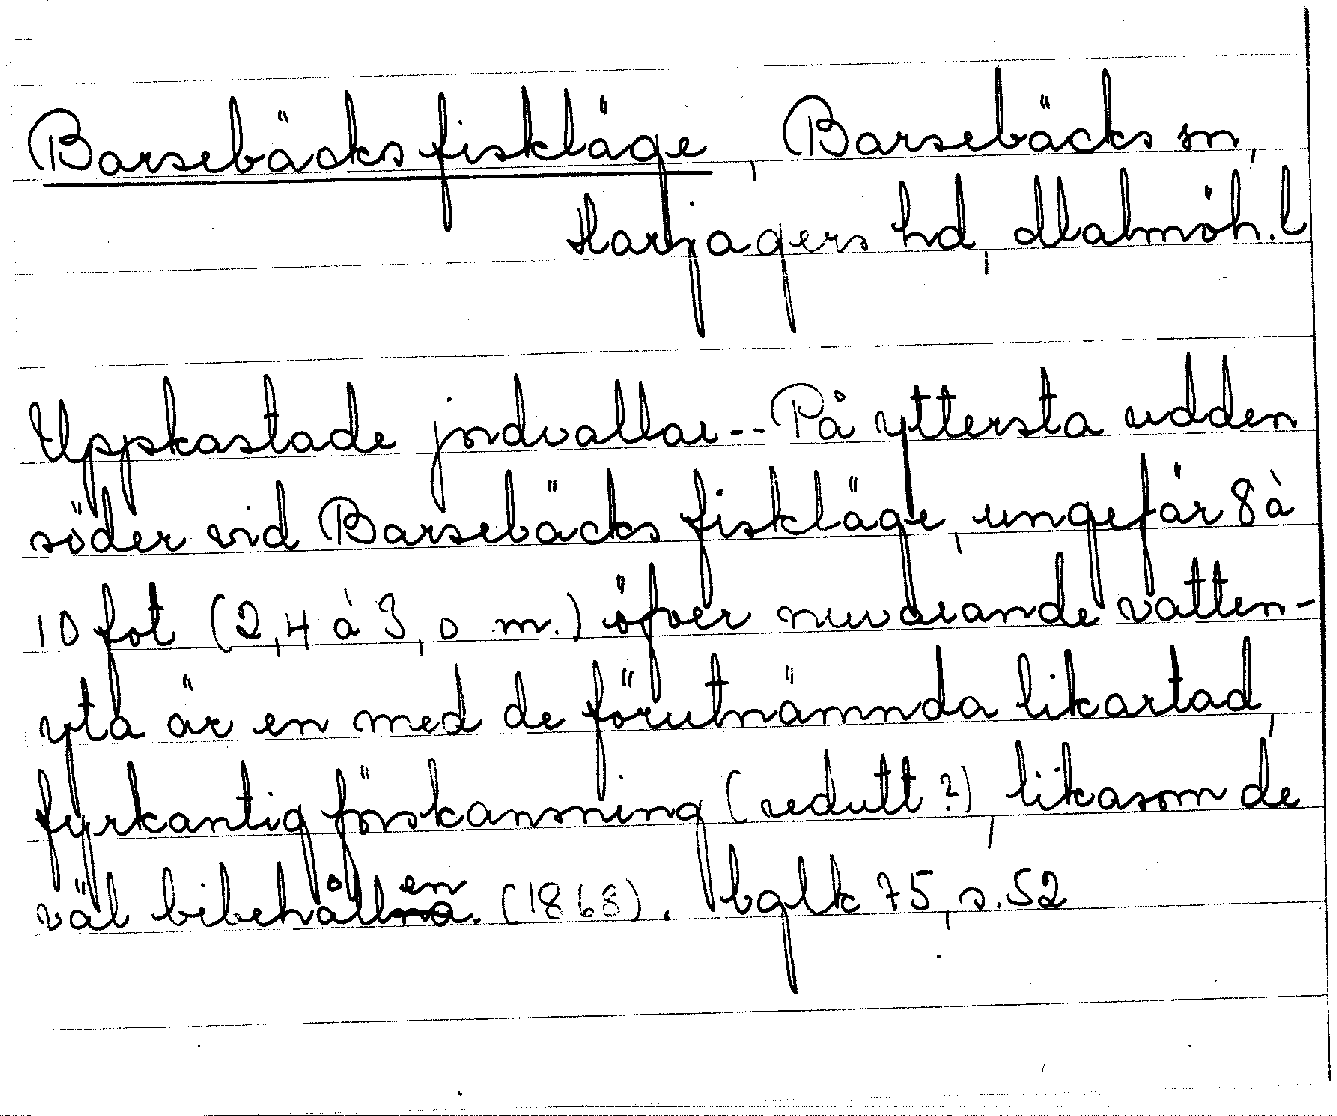 Barsebäcks fiskläge, Barsebäcks sn,
Harjagers hd, Malmöh. l
Uppkastade jordvallar -- På yttersta udden
söder vid Barsebäcks fiskläge, ungefär 8 à
10 fot (2,4 à 3,0 m.) öfver nuvarande vatten-
yta är en med de förutnämnda likartad,
fyrkantig förskansning (redutt?), likasom de
väl bibehållen. (1868). bglk 75, s. 52